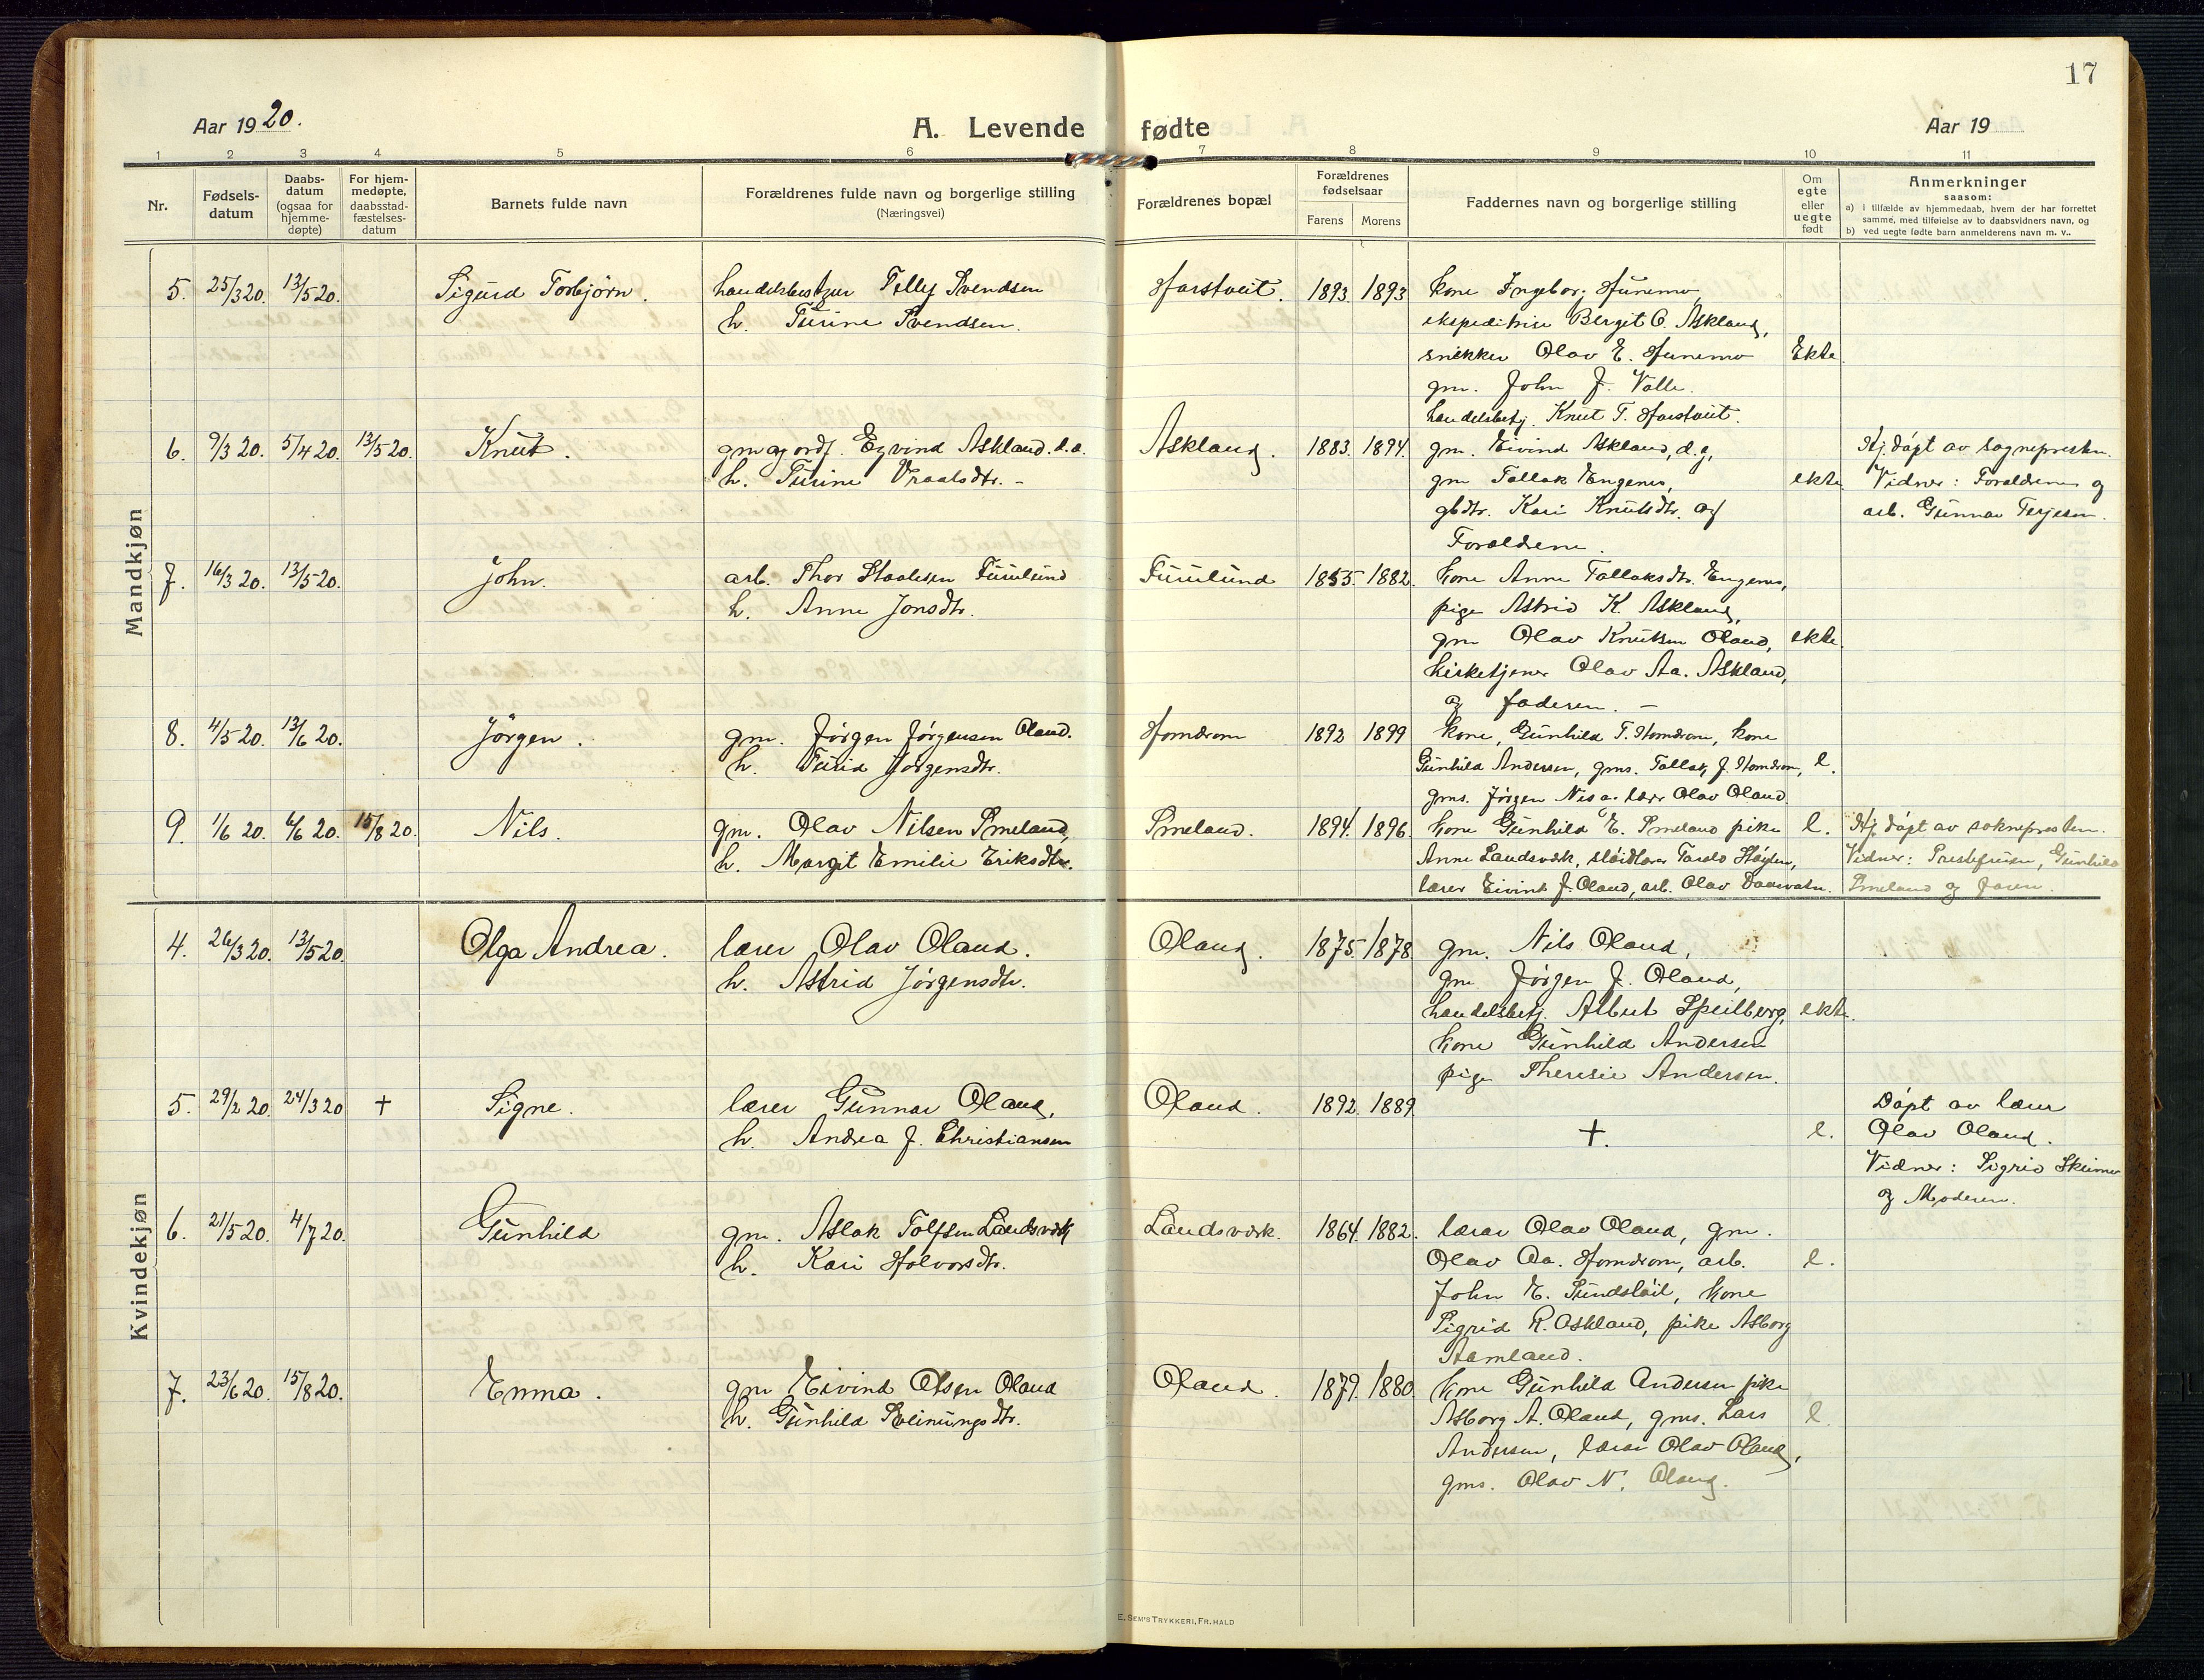 17
Aar 1920.
A. Levende fødte
Aar 19
1 2 3 4 5 6 7 8 9 10 11
Nr.
Fødsels-
datum
Daabs-
datum
(ogsaa for
hjemme-
døpte)
For hjem-
medøpte,
daabsstad-
fæstelses-
datum
Barnets fulde navn
Forældrenes fulde navn og borgerlige stilling
(Næringsvei)
Forældrenes bopæl
Forældrenes
fødselsaar
Farens Morens
Faddernes navn og borgerlige stilling
Om
egte
eller
uegte
født
Anmerkninger
saasom:
a) i tilfælde av hjemmedaab, hvem der har forrettet
samme, med tilføielse av to daabsvidners navn, og
b) ved uegte fødte barn anmelderens navn m. v..
Mandkjøn
5. 25/3 20. 13/5 20. Sigurd Torbjørn. Svendsen Harstveit. 1893 1893 kone Ingeborg Hunemo,
h. Turine Svendsen. Bergit O. Askland,
snekker Olav E. Hunemo Ekte
gm. John J. Valle.
Knut T. Harstveit.
6. 9/3 20. 5/4 20. 13/5 20. Knut. gm og ordf. Eyvind Askland. d.a. Askland. 1883. 1894. gm. Eivind Askland, d.y. Hj. døpt av sognepresten.
h. Turine Vraalsdtr. - gm Tallak Engenes, ekte Vidner: Foraldrene og
gbdtr. Kari Knutsdtr. og arb. Gunnar Terjesen.
Foraldrene.
7. 16/3 20. 13/5 20. John. arb. Thor Staalesen Furulund Furulund 1855. 1882. kone Anne Tallaksdtr. Engenes,
h. Anne Jonsdtr. pige Astrid K. Askland,
gm Olav Knutsen Oland, ekte.
kirketjener Olav Aa. Askland,
og faderen. -
8. 4/5 20. 13/6 20. Jörgen. gm. Jørgen Jørgensen Oland. Homdrom 1892 1899 kone, Gunhild T. Homdrom, kone
h. Turid Jörgensdtr. Gunhild Andersen, gms. Tallak J. Homdrom, e.
gms. Jörgen Olav Oland.
9. 1/6 20. 6/6 20. 15/8 20. Nils. gm. Olav Nilsen Smeland, Smeland. 1894. 1896. kone Gunhild E. Smeland pike e. Hj. døpt av soknepresten.
h. Margit Emilie Eriksdtr. Anne Landsverk, Vidner: Gunhild
lærer Eivind J. Oland, arb. Olav Smeland og faren.
Kvindekjøn
4. 26/3 20. 13/5 20. Olga Andrea. lærer Olav Oland. Oland. 1875. 1878. gm. Nils Oland,
h. Astrid Jörgensdtr. gm Jörgen J. Oland,
handelsbetj. Albert Speilberg, ekte.
kone Gunhild Andersen
pige Theresie Andersen.
5. 29/2 20. 24/3 20 † Signe. lærer Gunnar Oland, Oland. 1892. 1889. Døpt av lærer
h. Andrea J. Christiansen †. e. Olav Oland.
Vidner: Sigrid
og Moderen.
6. 21/5 20. 4/7 20. Gunhild gm. Aslak Tolfsen Landsverk Landsverk. 1864. 1882. lærer Olav Oland, gm.
h. Kari Halvorsdtr. Olav Aa. Homdrom, arb. e.
John E. kone
Sigrid R. Askland, pike Asborg
Aamland.
7. 23/6 20. 15/8 20. Emma. gm Eivind Olsen Oland Oland. 1879. 1880. kone Gunhild Andersen pike
h. Gunhild Asborg A. Oland, gms. Lars e.
Andersen, lærer Olav Oland,
gms. Olav N. Oland.
E. SEM'S TRYKKERI, FR.HALD